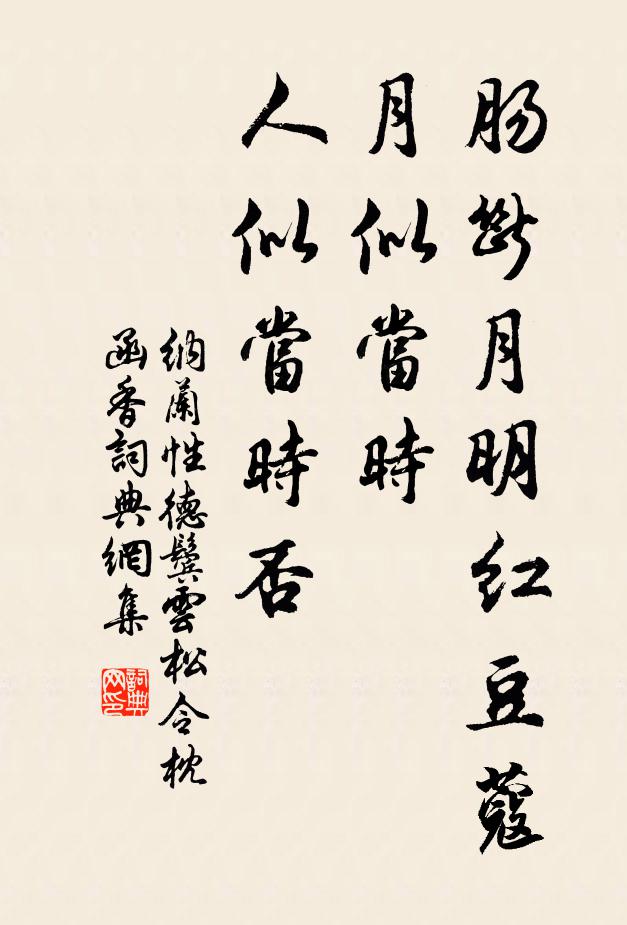 腸斷月明紅豆蔻
月似當時
人似當時否
納蘭性德鬢雲松令枕
函香詞典網集
詞典
网印